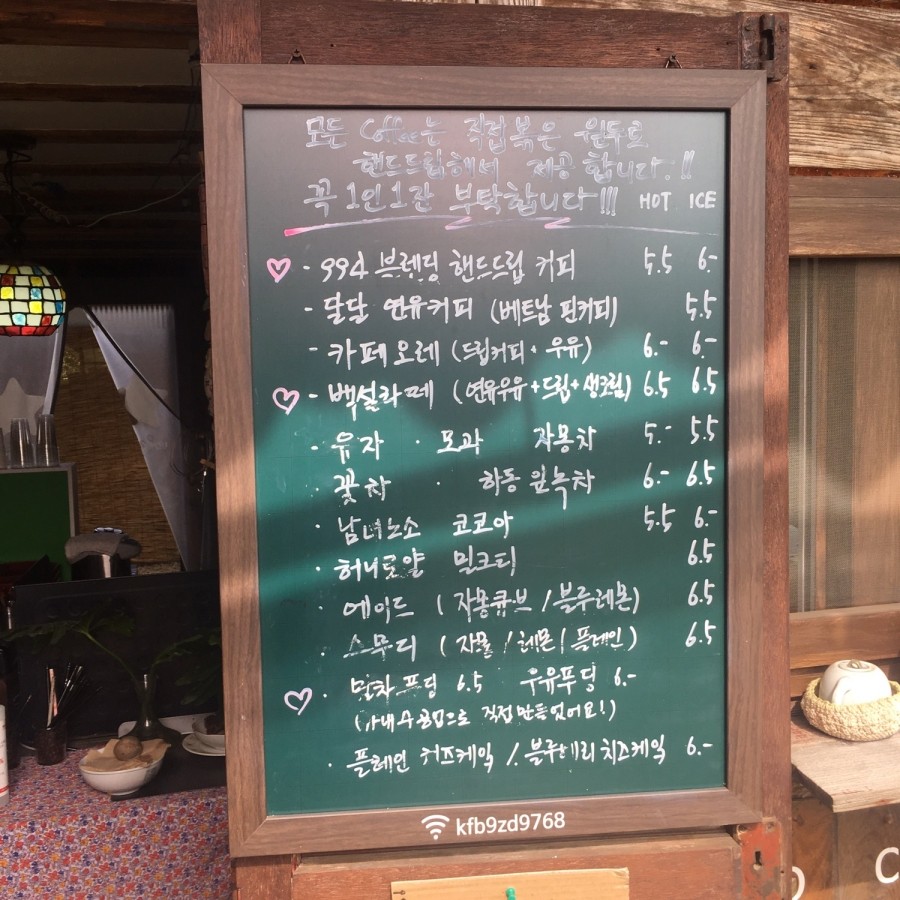 모든 Coffee는 직접볶은 원두로
핸드드립해서 제공합니다.!!
꼭 1인1잔 부탁합니다!!! HOT ICE
♡ - 994 브렌딩 핸드드립 커피 5.5 6.-
- 달달 연유커피 (베트남 핀커피) 5.5
- 카페오레 (드립커피+우유) 6.- 6.-
♡ - 백설라떼 (연유우유+드립+생크림) 6.5 6.5
· 유자 · 모과 자몽차 5.- 5.5
· 꽃차 · 하동 원녹차 6.- 6.5
· 남녀노소 코코아 5.5 6.-
· 허니로얄 밀크티 6.5
· 에이드 (자몽큐브/블루레몬) 6.5
· 스무디 (자몽/레몬/플레인) 6.5
♡ · 말차푸딩 6.5 우유푸딩 6.-
(가내수공업으로 직접만들었어요!)
· 플레인 치즈케잌 / 블루베리치즈케잌 6.-
kfb9zd9768